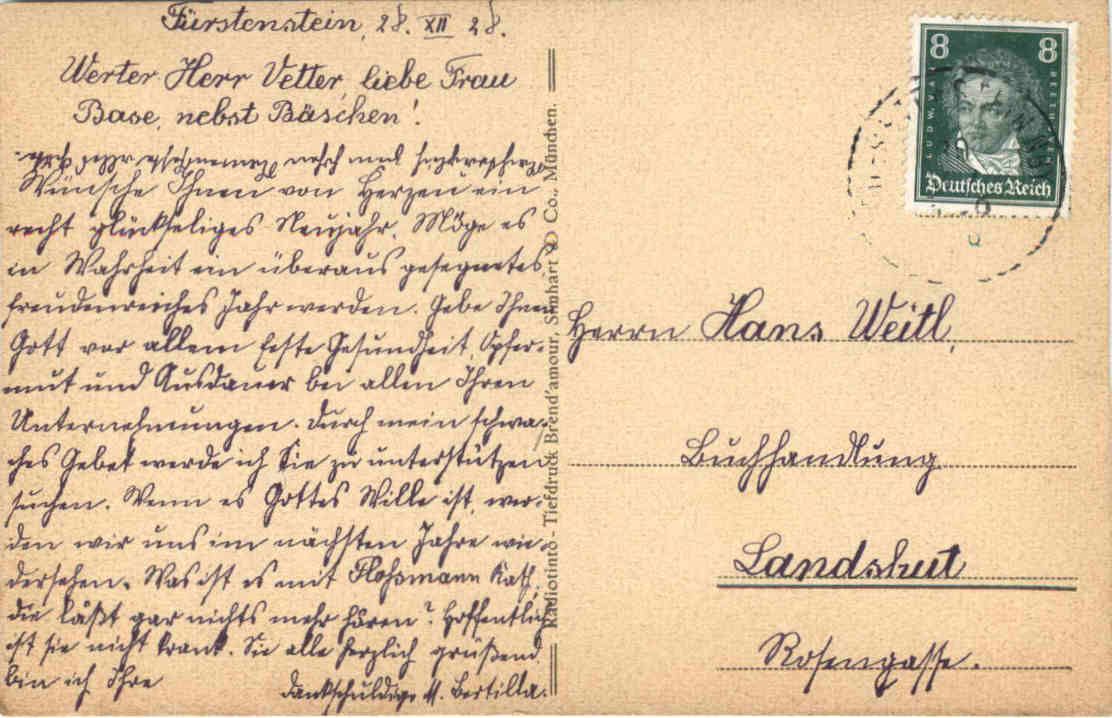 Fürstenstein, 28. XII 28.
Werter Herr Vetter, liebe Frau
Base, nebst Bäschen!
Wünsche Ihnen von Herzen ein
recht glückseliges Neujahr. Möge es
in Wahrheit ein überaus gesegnetes,
freudenreiches Jahr werden. Gebe Ihnen
Gott vor allem feste Gesundheit, Opfer-
mut und Ausdauer bei allen Ihren
Unternehmungen. Durch mein schwa-
ches Gebet werde ich Sie zu unterstützen
suchen. Wenn es Gottes Wille ist, wer-
den wir uns im nächsten Jahre wie-
dersehen. Was ist es mit Floßmann Kath.
die läßt gar nichts mehr hören? Hoffentlich
ist sie nicht krank. Sie alle herzlich grüßend
bin ich Ihre
dankschuldige M. Bertilla.
Radiotinto - Tiefdruck Brend'amour, Simhart & Co., München.
8 8
LUDWIG BEETHOVEN
Deutsches Reich
Herrn Hans Weitl,
Buchhandlung
Landshut
Rosengasse.